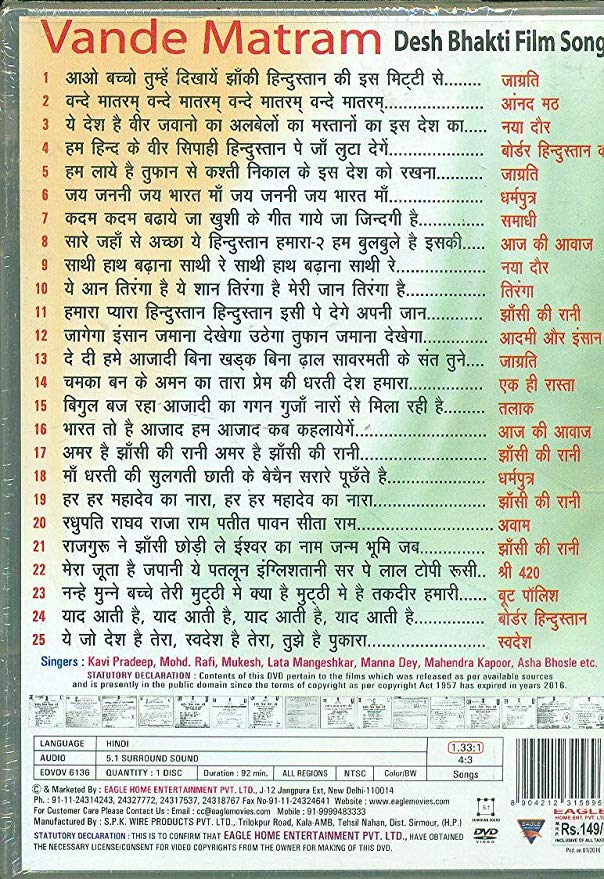 Vande Matram Desh Bhakti Film Song
1 आओ बच्चो तुम्हें दिखायें झाँकी हिन्दुस्तान की इस मिट्टी से........ जाग्रति
2 वन्दे मातरम् वन्दे मातरम् वन्दे मातरम् वन्दे मातरम्..................... आंनद मठ
3 ये देश है वीर जवानो का अलबेलों का मस्तानों का इस देश का..... नया दौर
4 हम हिन्द के वीर सिपाही हिन्दुस्तान पे जाँ लुटा देगें.................... बोर्डर हिन्दुस्तान क
5 हम लाये है तुफान से कश्ती निकाल के इस देश को रखना........... जाग्रति
6 जय जननी जय भारत माँ जय जननी जय भारत माँ................... धर्मपुत्र
7 कदम कदम बढाये जा खुशी के गीत गाये जा जिन्दगी है............. समाधी
8 सारे जहाँ से अच्छा ये हिन्दुस्तान हमारा-२ हम बुलबुले है इसकी..... आज की आवाज
9 साथी हाथ बढ़ाना साथी रे साथी हाथ बढ़ाना साथी रे.................. नया दौर
10 ये आन तिरंगा है ये शान तिरंगा है मेरी जान तिरंगा है................ तिरंगा
11 हमारा प्यारा हिन्दुस्तान हिन्दुस्तान इसी पे देगे अपनी जान........... झाँसी की रानी
12 जागेगा इंसान जमाना देखेगा उठेगा तुफान जमाना देखेगा............. आदमी और इंसान
13 दे दी हमे आजादी बिना खड्क बिना ढ़ाल सावरमती के संत तुने.... जाग्रति
14 चमका बन के अमन का तारा प्रेम की धरती देश हमारा............... एक ही रास्ता
15 बिगुल बज रहा आजादी का गगन गुजाँ नारों से मिला रही है......... तलाक
16 भारत तो है आजाद हम आजाद कब कहलायेगें......................... आज की आवाज
17 अमर है झाँसी की रानी अमर है झाँसी की रानी....................... झाँसी की रानी
18 माँ धरती की सुलगती छाती के बेचैन सरारे पूछँते है.................. धर्मपुत्र
19 हर हर महादेव का नारा, हर हर महादेव का नारा..................... झाँसी की रानी
20 रधुपति राघव राजा राम पतीत पावन सीता राम........................ अवाम
21 राजगुरू ने झाँसी छोड़ी ले ईश्वर का नाम जन्म भूमि जब............. झाँसी की रानी
22 मेरा जूता है जपानी ये पतलून इंग्लिशतानी सर पे लाल टोपी रूसी.. श्री 420
23 नन्हे मुन्ने बच्चे तेरी मुट्ठी मे क्या है मुट्ठी मे है तकदीर हमारी...... बूट पॉलिश
24 याद आती है, याद आती है, याद आती है, याद आती है............... बोर्डर हिन्दुस्तान
25 ये जो देश है तेरा, स्वदेश है तेरा, तुझे है पुकारा...................... स्वदेश
Singers : Kavi Pradeep, Mohd. Rafi, Mukesh, Lata Mangeshkar, Manna Dey, Mahendra Kapoor, Asha Bhosle etc.
STATUTORY DECLARATION : Contents of this DVD pertain to the films which was released as per available sources
and is presently in the public domain since the terms of copyright as per copyright Act 1957 has expired in years 2016.
LANGUAGE HINDI 1.33:1
AUDIO 5.1 SURROUND SOUND 4:3
EDVDV 6136 QUANTITY : 1 DISC Duration : 92 min. ALL REGIONS NTSC Color/BW Songs
© & Marketed By : EAGLE HOME ENTERTAINMENT PVT. LTD., J-12 Jangpura Ext, New Delhi-110014
Ph. : 91-11-24314243, 24327772, 24317537, 24318767 Fax No-91-11-24324641 Website : www.eaglemovies.com
For Customer Care Please Contact Us : Email : cc@eaglemovies.com Mobile : 91-9999483333
Manufactured By : S.P.K. WIRE PRODUCTS PVT. LTD., Trilokpur Road, Kala-AMB, Tehsil Nahan, Dist. Sirmour, (H.P.)
STATUTORY DECLARATION : THIS IS TO CONFIRM THAT EAGLE HOME ENTERTAINMENT PVT. LTD., HAVE OBTAINED
THE NECESSARY LICENSE/CONSENT FOR VIDEO COPYRIGHTS FROM THE OWNER FOR MAKING OF THIS DVD.
5.1
DVD
VIDEO
EAGLE
8 904212 315696
EAGLE
HOME ENT. PVT. LTD.
M.R.P. Rs.149/
INCLUSIVE OF ALL TAXES
Pkd. on 01/2016